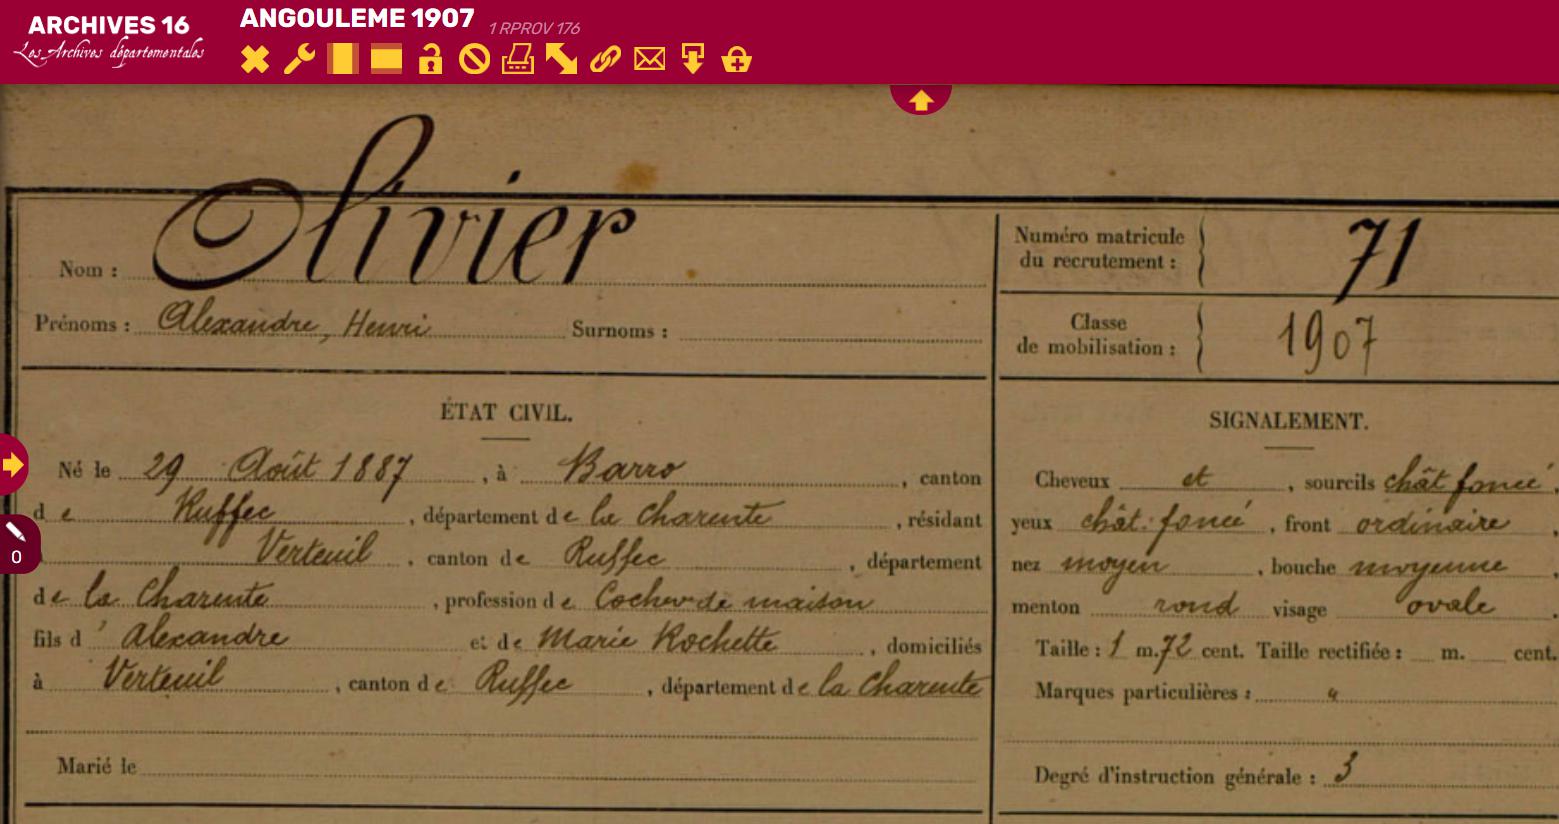 ARCHIVES 16
Les Archives départementales
ANGOULEME 1907 1 RPROV 176
Nom : Olivier
Prénoms : Alexandre, Henri Surnoms :
Numéro matricule du recrutement : 71
Classe de mobilisation : 1907
ÉTAT CIVIL.
Né le 29 Août 1887, à Barro, canton
de Ruffec, département de la Charente, résidant
Verteuil, canton de Ruffec, département
de la Charente, profession de Cocher de maison
fils d' Alexandre et de Marie Rochette, domiciliés
à Verteuil, canton de Ruffec, département de la Charente
Marié le
SIGNALEMENT.
Cheveux et, sourcils chât foncé,
yeux chât. foncé, front ordinaire,
nez moyen, bouche moyenne,
menton rond visage ovale.
Taille : 1 m. 72 cent. Taille rectifiée : m. cent.
Marques particulières : "
Degré d'instruction générale : 3
0